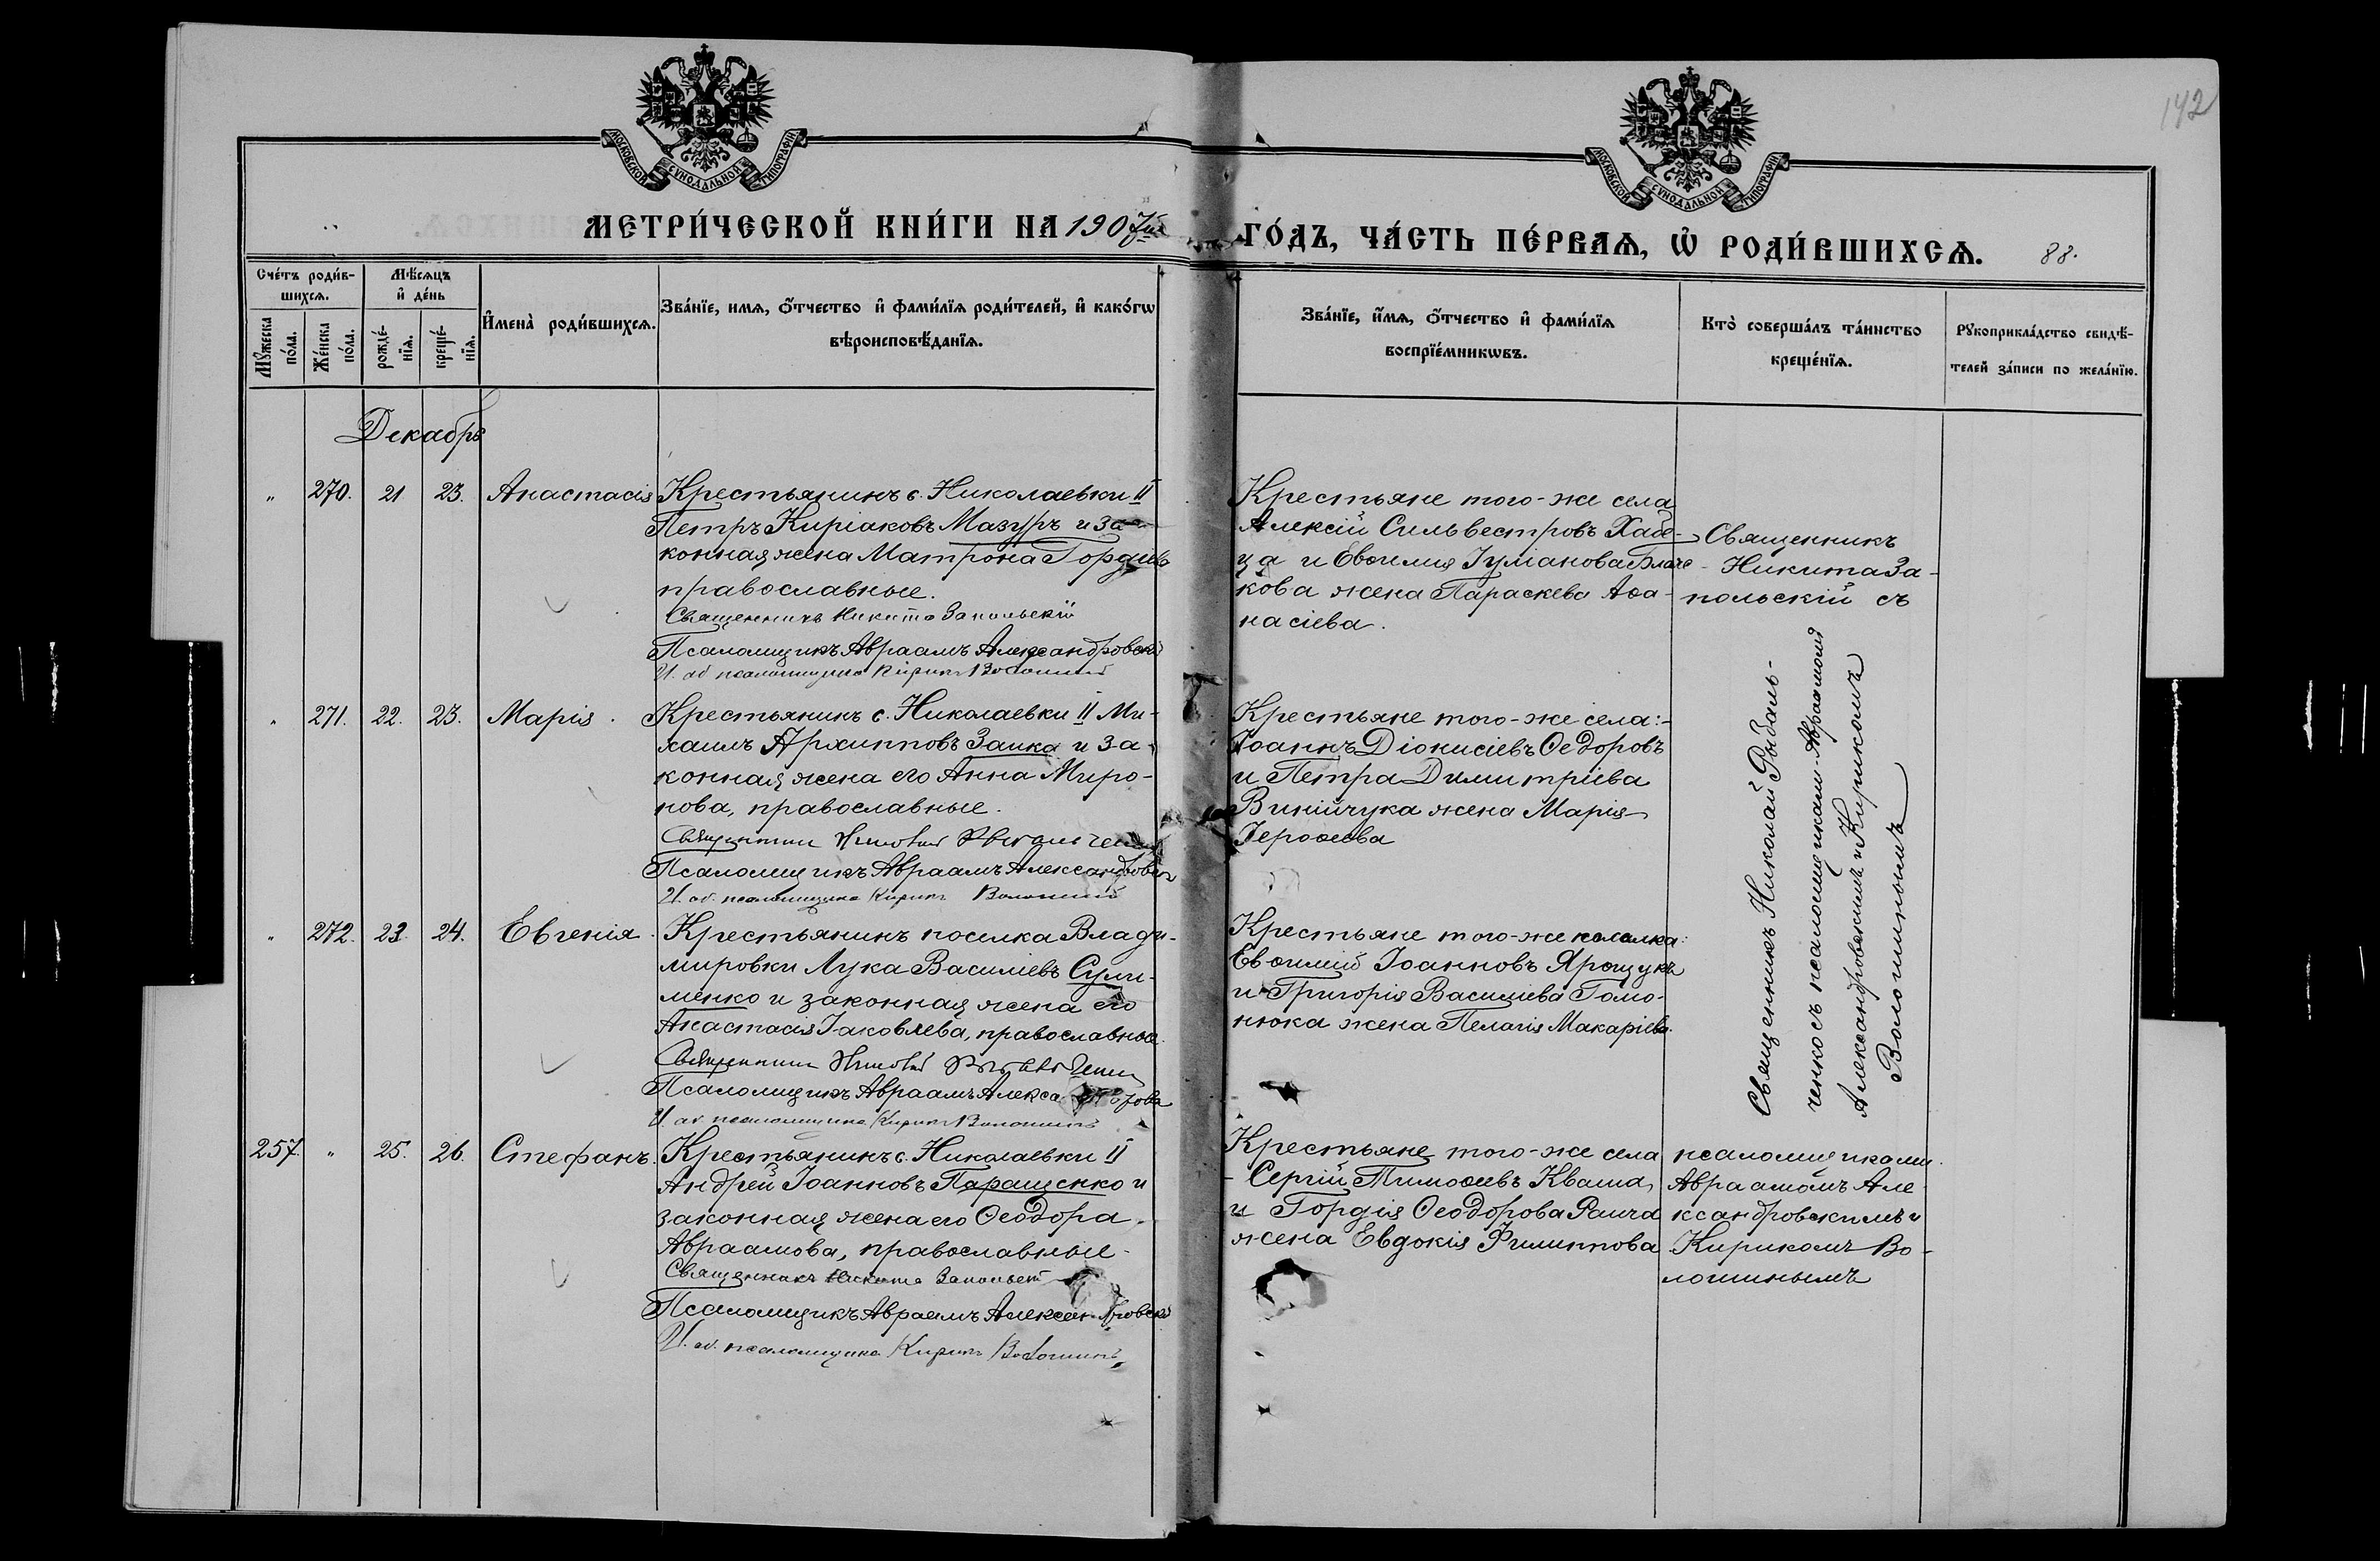 142
МОСКОВСКОЙ СУНОДАЛЬНОЙ ТИПОГРАФІИ
МОСКОВСКОЙ СУНОДАЛЬНОЙ ТИПОГРАФІИ
МЕТРИ́ЧЕСКОЙ КНИ́ГИ НА 1907й
ГО́ДЪ, ЧА́СТЬ ПЕ́РВАѦ, Ѡ҆ РОДИ́ВШИХСѦ.
88.
Сче́тъ роди́в-
шихсѧ.
Мꙋ́жеска
по́ла.
Же́нска
по́ла.
Мѣ́сѧцъ
и҆ де́нь
рожде́-
нїѧ.
креще́-
нїѧ.
И҆мена̀ роди́вшихсѧ.
Зва́нїе, имѧ, ѻ҆́тчество и҆ фами́лїѧ роди́телей, и҆ како́гѡ
вѣроисповѣ́данїѧ.
Зва́нїе, и҆́мѧ, ѻ҆́тчество и҆ фами́лїѧ
воспрїе́мникѡвъ.
Кто̀ соверша́лъ та́инство
креще́нїѧ.
Рꙋкоприкла́дство свидѣ́-
телей за́писи по жела́нїю.
Декабрь
„ 270. 21 23. Анастасія
Крестьянинъ с. Николаевки II
Петръ Киріаковъ Мазуръ и за-
конная жена Матрона Гордіева
православные.
Священникъ Никита Запольскій
Псаломщикъ Авраамъ Александровскій
И. об. псаломщика Кирикъ Волошинъ
Крестьяне того-же села
Алексій Сильвестровъ
и Евѳимія Іуліанова
кова жена Параскева Аѳа-
насіева.
Священникъ
Никита За-
польскій съ
„ 271. 22. 23. Марія.
Крестьянинъ с. Николаевки II Ми-
хаилъ Архипповъ Заика и за-
конная жена его Анна Миро-
нова, православные.
Священникъ Николай Рыбальченко
Псаломщикъ Авраамъ Александровскій
И. об. псаломщика Кирикъ Волошинъ
Крестьяне того-же села:-
Іоаннъ Діонисіевъ Ѳедоровъ
и Петра Димитріева
Винійчука жена Марія
Іероѳеева
Священникъ Николай Рыбаль-
ченко съ псаломщиками-Авраамомъ
Александровскимъ и Кирикомъ
Волошинымъ
„ 272. 23. 24. Евгенія.
Крестьянинъ поселка Влади-
мировки Лука Василіевъ Сули-
менко и законная жена его
Анастасія Іаковлева, православные.
Священникъ Николай Рыбальченко
Псаломщикъ Авраамъ Александровскій
И. об. псаломщика Кирикъ Волошинъ
Крестьяне того-же поселка:
Евѳимій Іоанновъ Ярощукъ
и Григорія Василіева Гомо-
нюка жена Пелагія Макаріева.
257. „ 25. 26. Стефанъ.
Крестьянинъ с. Николаевки II
Андрей Іоанновъ Паращенко и
законная жена его Ѳеодора
Авраамова, православные.
Священникъ Никита Запольскій
Псаломщикъ Авраамъ Александровскій
И. об. псаломщика Кирикъ Волошинъ
Крестьяне того-же села
- Сергій Тимоѳеевъ Кваша,
и Гордія Ѳеодорова
жена Евдокія Филиппова
псаломщиками
Авраамомъ Але-
ксандровскимъ и
Кирикомъ Во-
лошинымъ